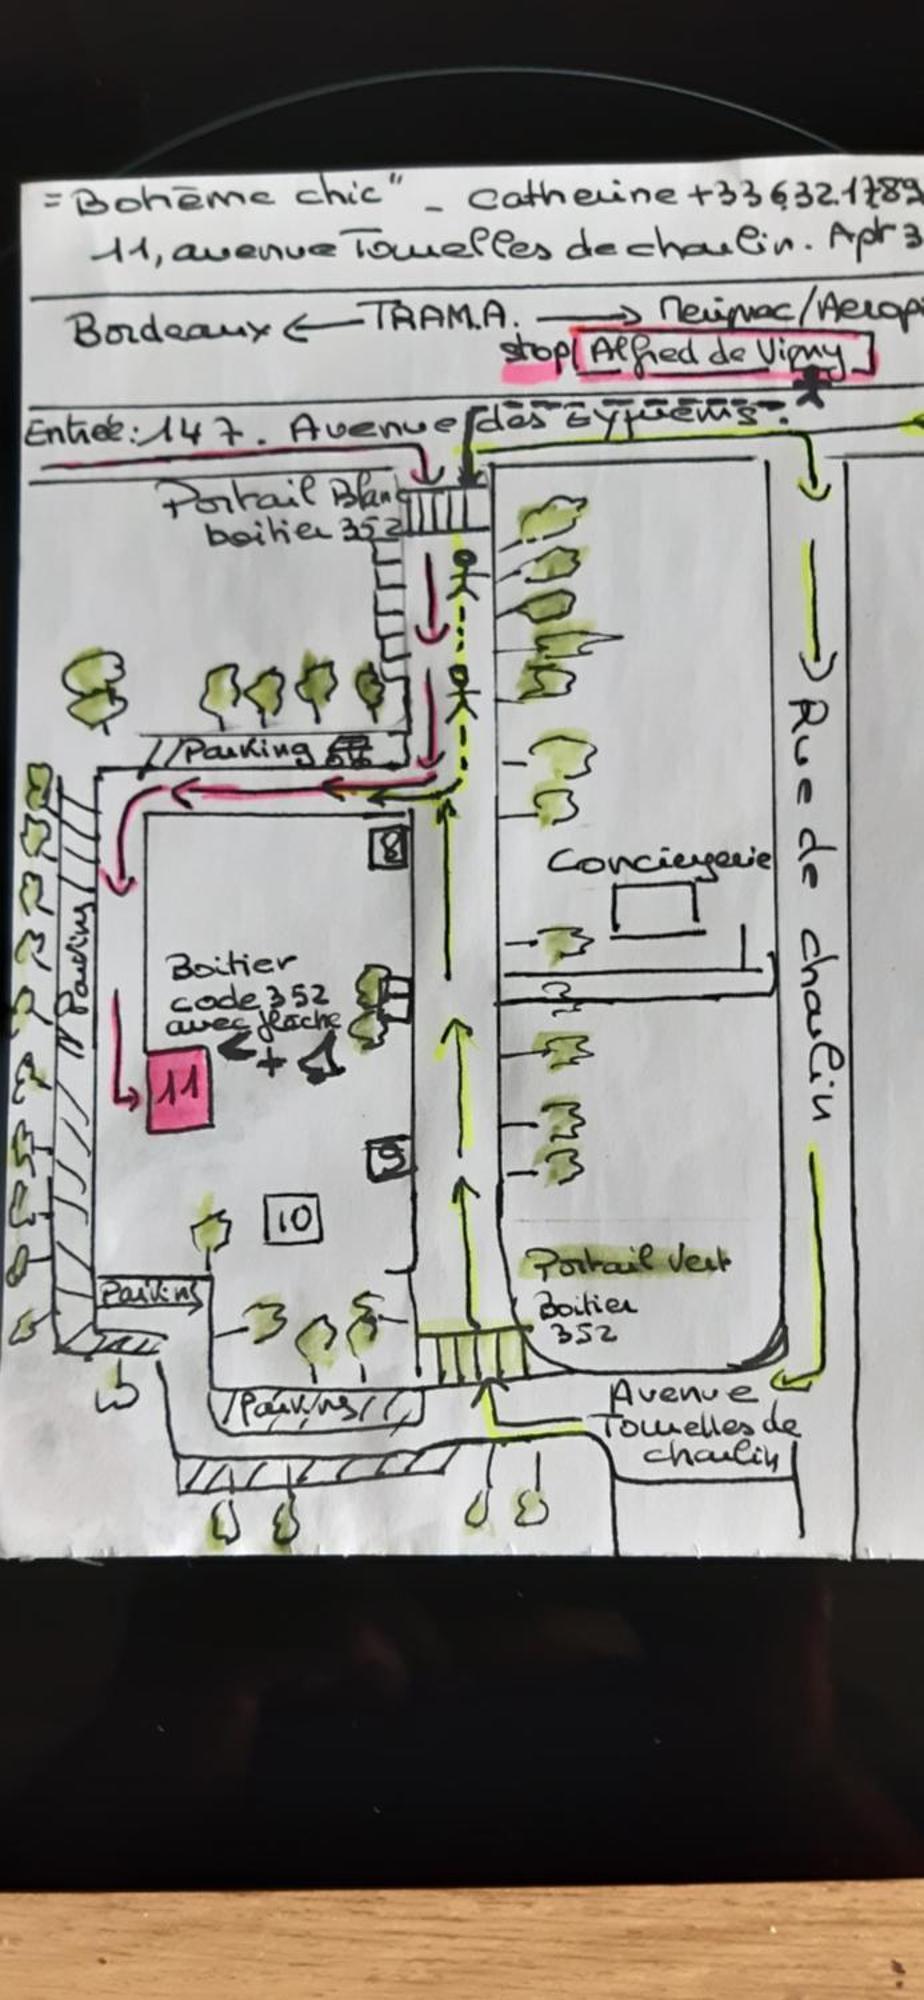 = Bohème chic" - Catherine +33632.1789
11, avenue Tourelles de charlin. Apt 3
Bordeaux ← TRAM.A. → Merignac/Aerop
stop [Alfred de Vigny]
Entrée: 147. Avenue des Eyquems.
Portail Blanc
boitier 352
Parking
8
Conciergerie
Rue de charlin
Parking
Boitier
code 352
avec flèche
+
11
9
10
Portail Vert
Boitier
352
Parking
Parking
Avenue
Tourelles de
charlin